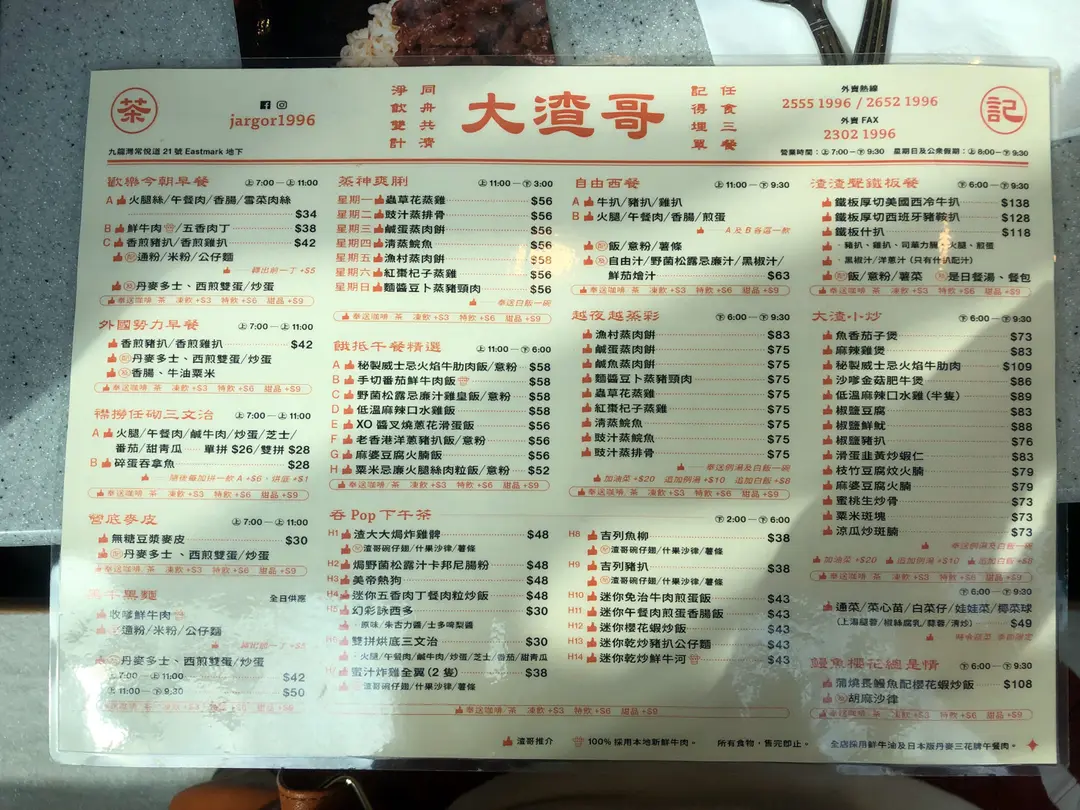 茶
jargor1996
九龍灣常悅道 21 號 Eastmark 地下
同舟共濟
淨飲雙計
大渣哥
任食三餐
記得埋單
外賣熱線
2555 1996 / 2652 1996
外賣 FAX
2302 1996
營業時間：上 7:00 — 下 9:30 星期日及公眾假期：上 8:00 — 下 9:30
記
歡樂今朝早餐 上 7:00 — 上 11:00
A 火腿絲/午餐肉/香腸/雪菜肉絲
$34
B 鮮牛肉/五香肉丁 $38
C 香煎豬扒/香煎雞扒 $42
通粉/米粉/公仔麵
轉出前一丁 +$5
丹麥多士、西煎雙蛋/炒蛋
奉送咖啡/茶 凍飲 +$3 特飲 +$6 甜品 +$9
外國勢力早餐 上 7:00 — 上 11:00
香煎豬扒/香煎雞扒 $42
丹麥多士、西煎雙蛋/炒蛋
香腸、牛油粟米
奉送咖啡/茶 凍飲 +$3 特飲 +$6 甜品 +$9
襟撈任砌三文治 上 7:00 — 上 11:00
A 火腿/午餐肉/鹹牛肉/炒蛋/芝士/
番茄/甜青瓜 單拼 $26/雙拼 $28
B 碎蛋吞拿魚 $28
隨後每加拼一款 A +$6，烘底 +$1
奉送咖啡/茶 凍飲 +$3 特飲 +$6 甜品 +$9
營底麥皮 上 7:00 — 上 11:00
無糖豆漿麥皮 $30
丹麥多士、西煎雙蛋/炒蛋
奉送咖啡/茶 凍飲 +$3 特飲 +$6 甜品 +$9
全日供應
收嗲鮮牛肉
通粉/米粉/公仔麵
丹麥多士、西煎雙蛋/炒蛋
上 7:00 — 上 11:00 $42
上 11:00 — 下 9:30 $50
奉送咖啡/茶 凍飲 +$3 特飲 +$6 甜品 +$9
蒸神爽脷 上 11:00 — 下 3:00
星期一 蟲草花蒸雞 $56
星期二 豉汁蒸排骨 $56
星期三 鹹蛋蒸肉餅 $56
星期四 清蒸鯇魚 $56
星期五 漁村蒸肉餅 $58
星期六 紅棗杞子蒸雞 $56
星期日 麵醬豆卜蒸豬頸肉 $56
奉送白飯一碗
奉送咖啡/茶 凍飲 +$3 特飲 +$6 甜品 +$9
餓抵午餐精選 上 11:00 — 下 6:00
A 秘製威士忌火焰牛肋肉飯/意粉 $58
B 手切番茄鮮牛肉飯 $58
C 野菌松露忌廉汁雞皇飯/意粉 $58
D 低溫麻辣口水雞飯 $58
E XO 醬叉燒蔥花滑蛋飯 $56
F 老香港洋蔥豬扒飯/意粉 $56
G 麻婆豆腐火腩飯 $56
H 粟米忌廉火腿絲肉粒飯/意粉 $52
奉送咖啡/茶 凍飲 +$3 特飲 +$6 甜品 +$9
自由西餐 上 11:00 — 下 9:30
A 牛扒/豬扒/雞扒
B 火腿/午餐肉/香腸/煎蛋
A 及 B 各選一款
飯/意粉/薯條
自由汁/野菌松露忌廉汁/黑椒汁/
鮮茄燴汁 $63
奉送咖啡/茶 凍飲 +$3 特飲 +$6 甜品 +$9
越夜越蒸彩 下 6:00 — 下 9:30
漁村蒸肉餅 $83
鹹蛋蒸肉餅 $75
鹹魚蒸肉餅 $75
麵醬豆卜蒸豬頸肉 $75
蟲草花蒸雞 $75
紅棗杞子蒸雞 $75
清蒸鯇魚 $75
豉汁蒸鯇魚 $75
豉汁蒸排骨 $75
奉送例湯及白飯一碗
加油菜 +$20 追加例湯 +$10 追加白飯 +$8
奉送咖啡/茶 凍飲 +$3 特飲 +$6 甜品 +$9
渣渣聲鐵板餐 下 6:00 — 下 9:30
鐵板厚切美國西冷牛扒 $138
鐵板厚切西班牙豬鞍扒 $128
鐵板什扒 $118
· 豬扒、雞扒、司華力腸、火腿、煎蛋
· 黑椒汁/洋蔥汁（只有什扒配汁）
飯/意粉/薯菜 是日餐湯、餐包
奉送咖啡/茶 凍飲 +$3 特飲 +$6 甜品 +$9
大渣小炒 下 6:00 — 下 9:30
魚香茄子煲 $73
麻辣雞煲 $83
秘製威士忌火焰牛肋肉 $109
沙嗲金菇肥牛煲 $86
低溫麻辣口水雞（半隻） $89
椒鹽豆腐 $83
椒鹽鮮魷 $88
椒鹽豬扒 $76
滑蛋韭黃炒蝦仁 $83
枝竹豆腐炆火腩 $79
麻婆豆腐火腩 $79
蜜桃生炒骨 $73
粟米斑塊 $73
涼瓜炒斑腩 $73
奉送例湯及白飯一碗
加油菜 +$20 追加例湯 +$10 追加白飯 +$8
奉送咖啡/茶 凍飲 +$3 特飲 +$6 甜品 +$9
下 6:00 — 下 9:30
通菜/菜心苗/白菜仔/娃娃菜/椰菜球
（上海腿蓉/椒絲腐乳/蒜蓉/清炒） $49
時令蔬菜 季節限定
鰻魚櫻花總是情 下 6:00 — 下 9:30
蒲燒長鰻魚配櫻花蝦炒飯 $108
胡麻沙律
奉送咖啡/茶 凍飲 +$3 特飲 +$6 甜品 +$9
吞 Pop 下午茶 下 2:00 — 下 6:00
H1 渣大大焗炸雞髀 $48
渣哥碗仔翅/什果沙律/薯條
H2 焗野菌松露汁卡邦尼腸粉 $48
H3 美帝熱狗 $48
H4 迷你五香肉丁餐肉粒炒飯 $48
H5 幻彩詠西多 $30
· 原味/朱古力醬/士多啤梨醬
H6 雙拼烘底三文治 $30
· 火腿/午餐肉/鹹牛肉/炒蛋/芝士/番茄/甜青瓜
H7 蜜汁炸雞全翼（2 隻） $38
渣哥碗仔翅/什果沙律/薯條
H8 吉列魚柳 $38
渣哥碗仔翅/什果沙律/薯條
H9 吉列豬扒 $38
渣哥碗仔翅/什果沙律/薯條
H10 迷你免治牛肉煎蛋飯 $43
H11 迷你午餐肉煎蛋香腸飯 $43
H12 迷你櫻花蝦炒飯 $43
H13 迷你乾炒豬扒公仔麵 $43
H14 迷你乾炒鮮牛河 $43
奉送咖啡/茶 凍飲 +$3 特飲 +$6 甜品 +$9
渣哥推介 100% 採用本地新鮮牛肉。 所有食物，售完即止。 全店採用鮮牛油及日本版丹麥三花牌午餐肉。